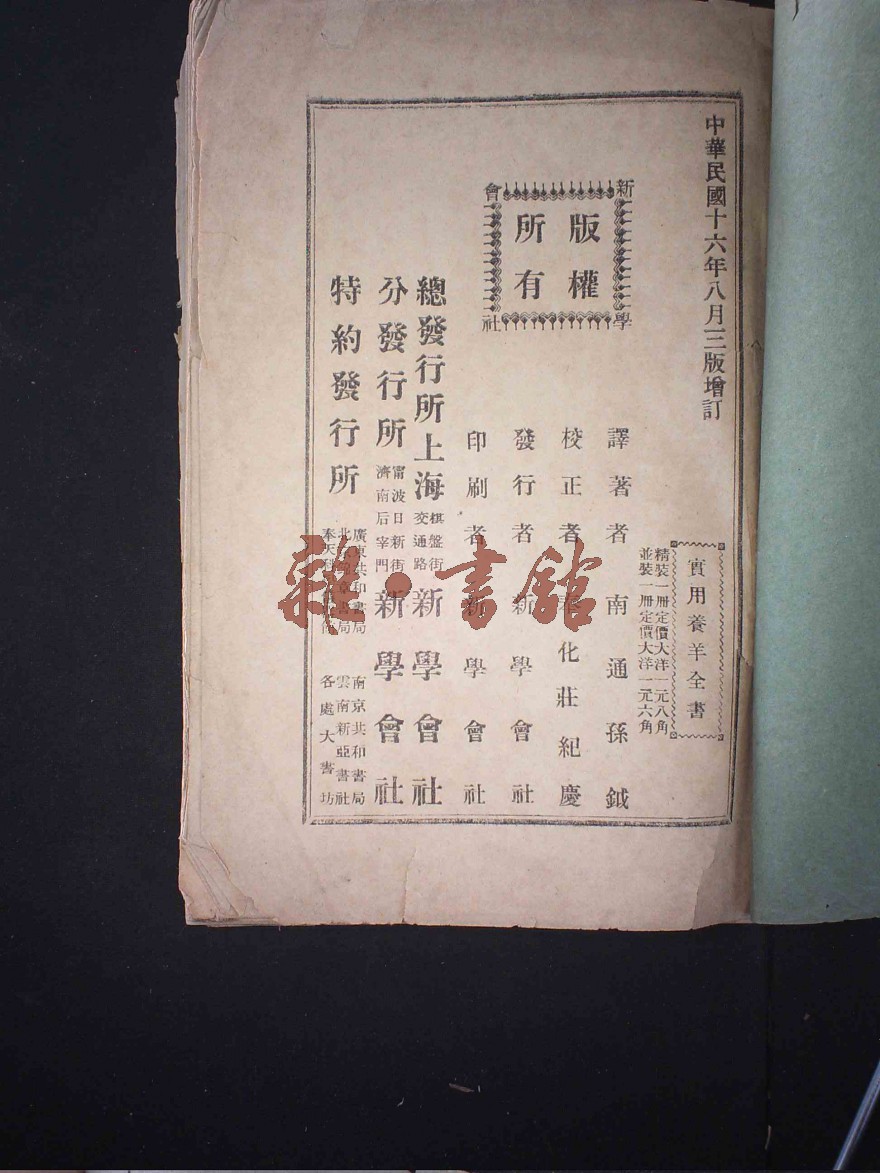 中華民國十六年八月三版增訂
實用養羊全書
精裝一冊定價大洋一元八角
並裝一冊定價大洋一元六角
新學會社
版權
所有
譯著者 南通孫鉞
校正者 奉化莊紀慶
發行者 新學會社
印刷者 新學會社
總發行所 上海 棋盤街 交通路 新學會社
分發行所 甯波日新街 濟南后宰門 新學會社
特約發行所
廣東共印書局
奉天
南京共和書局
雲南新亞書社
各處大書坊
雜·書館